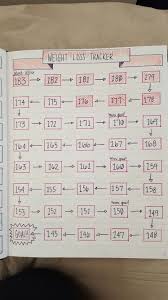 WEIGHT LOSS TRACKER
183 182 181 180 179
174 175 176 177 178
mini goal
173 172 171 170 169
164 165 166 167 168
mini goal
163 162 161 160 159
154 155 156 157 158
mini goal
153 152 151 150 149
GOAL! 145 146 147 148